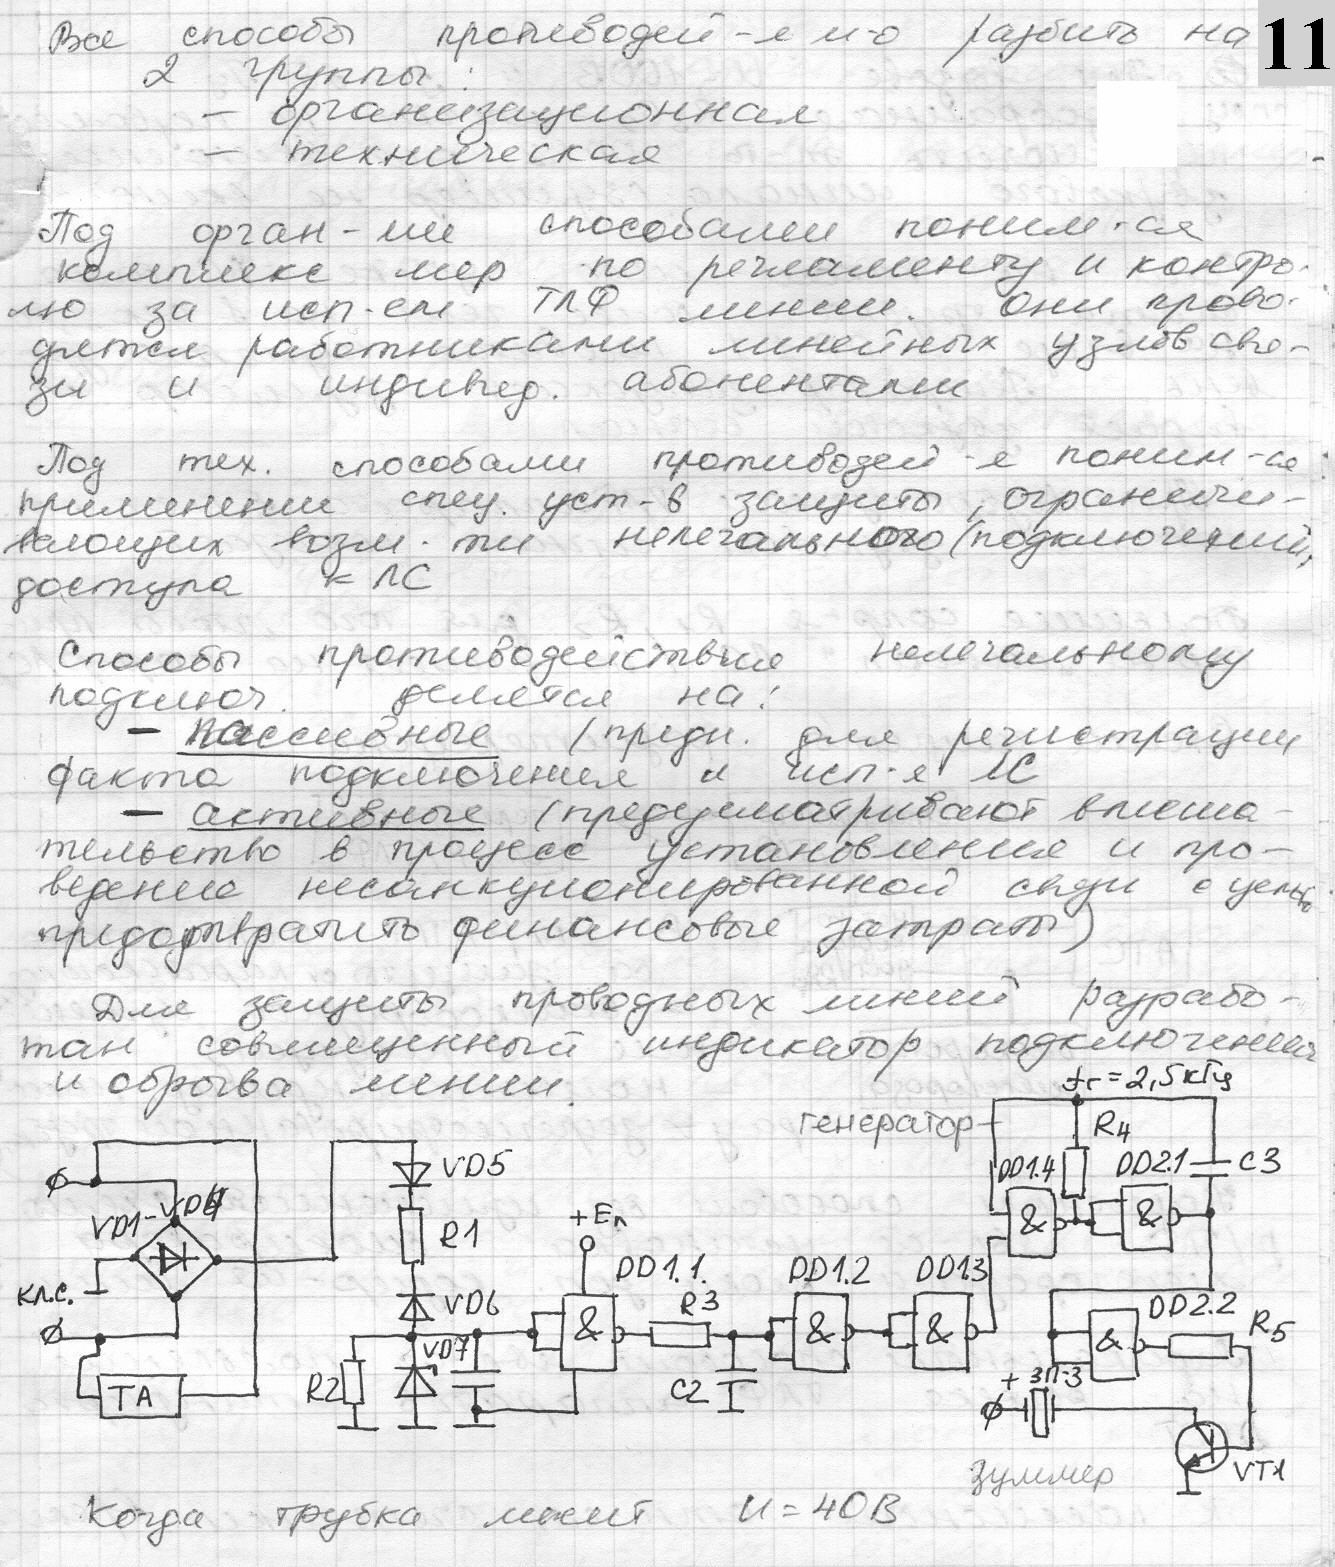 11
Все способы противодей-я м-о разбить на
2 группы:
– организационная
– техническая
Под орган-ми способами поним-ся
комплекс мер по регламенту и контро-
лю за исп-ем ТЛФ линии. Они прово-
дятся работниками линейных узлов свя-
зи и индивид. абонентами
Под тех. способами противодей-я поним-ся
применении спец. уст-в защиты, ограничи-
вающих возм-ти нелегального (подключений,
доступа к ЛС
Способы противодействия нелегальному
подключ. делятся на:
– пассивные (предн. для регистрации
факта подключения и исп-я ЛС
– активные (предусматривают вмеша-
тельство в процесс установления и про-
ведение несанкционированной связи с целью
предотвратить финансовые затраты)
Для защиты проводных линий разрабо-
тан совмещенный индикатор подключения
и обрыва линии.
fг = 2,5 кГц
генератор
R4
DD1.4
DD2.1
C3
VD5
VD1-VD4
R1
+Eп
кл.с.
VD6
DD1.1.
DD1.2
DD1.3
R3
DD2.2
R5
VD7
&
&
&
&
&
&
R2
C2
TA
+ ЗП-3
VT1
зуммер
Когда трубка лежит U = 40В